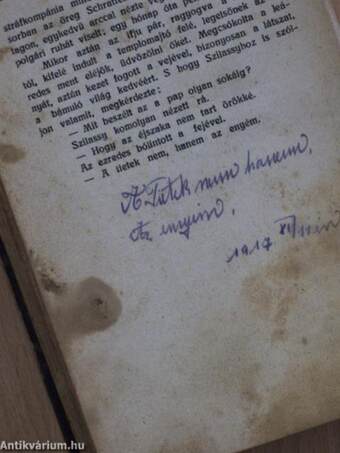 stráfkompánia
sorban az öreg Schran
lagon, egykedvű arccal nézte vég
polgári ruhát viselt; egy hónap óta pe
Mikor aztán az ifju pár, raggyogva a
től, kifelé indult a templomajtó felé, legelsőnek az
redes ment eléjök, üdvözölni őket. Megcsókolta a leá-
nyát, aztán kezet fogott a vejével, bizonyosan a látszat,
a bámuló világ kedvéért. S hogy Szilassyhoz is szól-
jon valamit, megkérdezte:
— Mit beszélt az a pap olyan sokáig?
Szilassy komolyan nézett rá.
— Hogy az éjszaka nem tart örökké.
Az ezredes bólintott a fejével.
— A tietek nem, hanem az enyém.
A Tietek nem hanem,
Az enyém,
1917 XI/
Antikvárium.hu